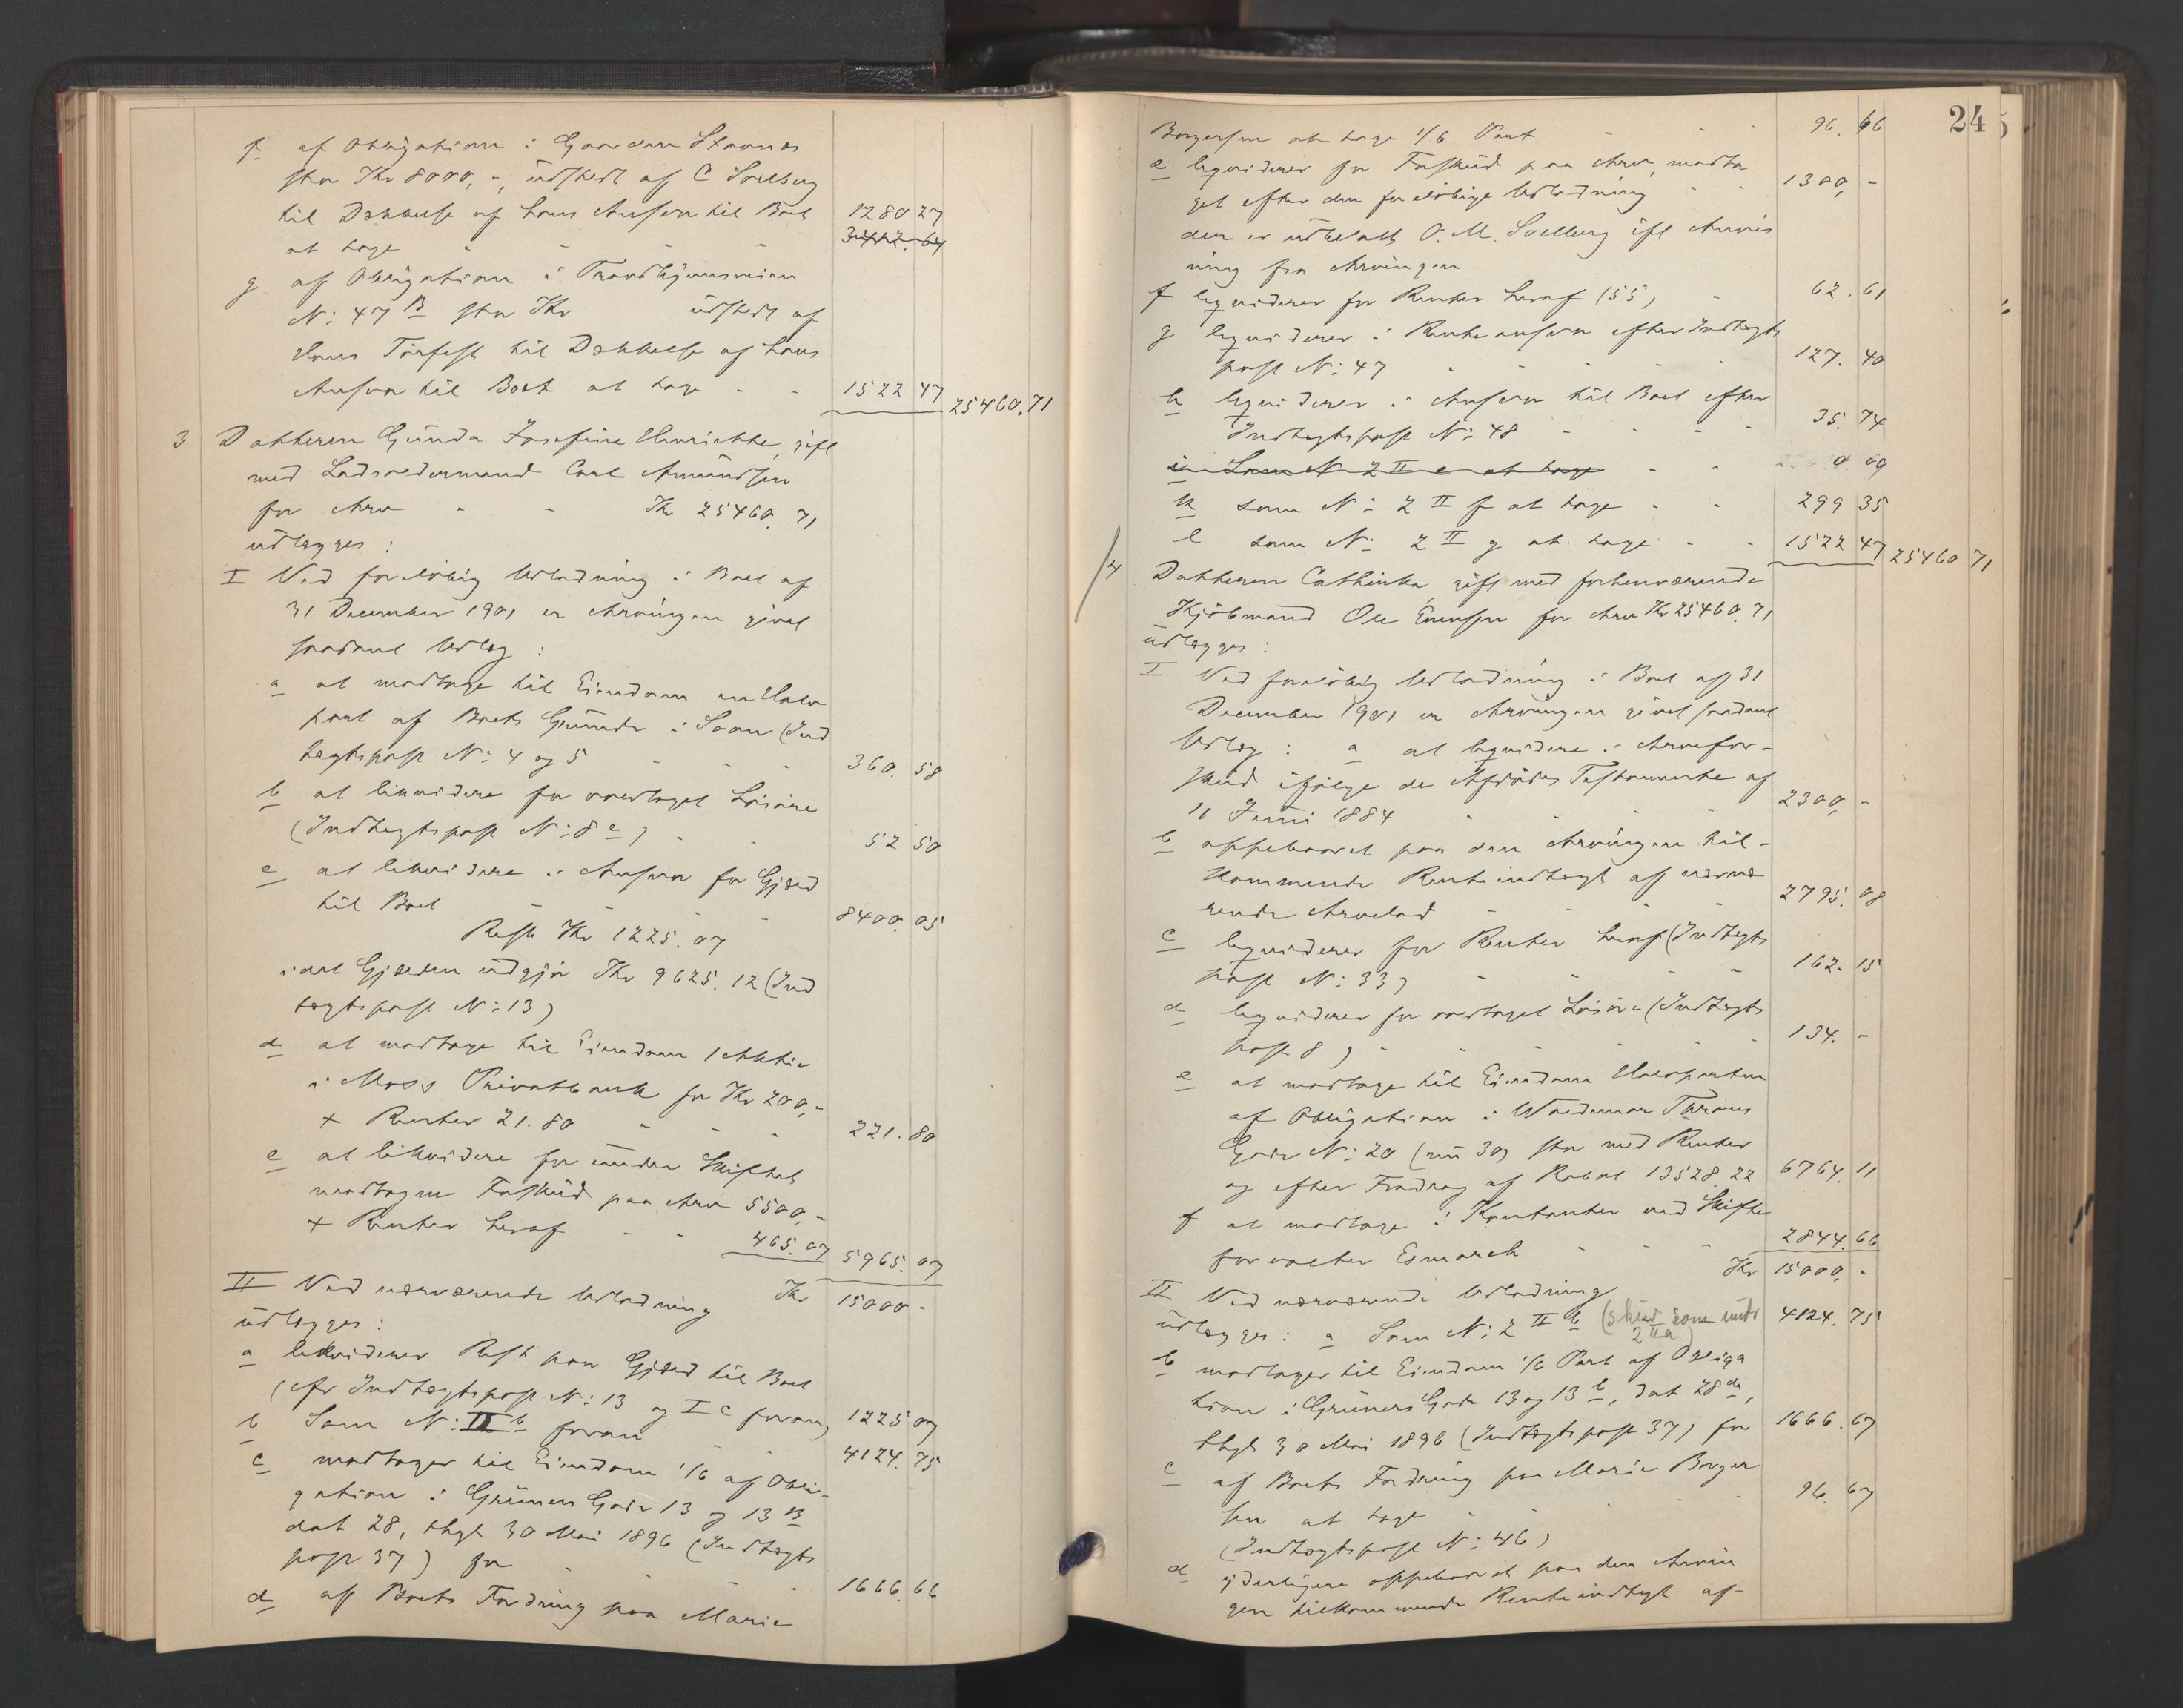 f af Obligation i Gaarden Stavnes
stor Kr 8000,-, udstedt af C Solberg
til Dækkelse af hans Ansvar til Boet 1280 27
at tage - - - 3442.64
g af Obligation i Trondhjemsveien
N: 47 B stor Kr udstedt af
Hans Torfest til Dækkelse af hans
Ansvar til Boet at tage - - 1522 47 25460.71
3 Datteren Gunda Josefine Henriette, gift
med Ladsoldermand Carl Amundsen
for Arv - - Kr 25460.71
udlægges:
I Ved foreløbig Udlodning i Boet af
31 December 1901 er Arvingen givet
saadant Udlæg:
a at modtage til Eiendom en Halv
part af Boets Grunde i Soon (Ind
tægtspost N: 4 og 5 - - - 360.58
b at likvidere for overtaget Løsøre
(Indtægtspost N: 8 c) - - 52 50
c at likvidere i Ansvar for Gjæld
til Boet - - - - 8400.05
Rest Kr 1225.07
idet Gjælden udgjør Kr 9625.12 (Ind
tægtspost N: 13)
d at modtage til Eiendom 1 Aktie
i Moss Privatbank for Kr 200,-
+ Renter 21.80 - - - 221.80
e at likvidere for under Skiftet
modtagne Forskud paa Arv 5500,-
+ Renter heraf - - 465.07 5965.07
Kr 15000 -
II Ved nærværende Udlodning
udlægges:
a likviderer Rest paa Gjæld til Boet
(cfr Indtægtspost N: 13 og I c foran) 1225 07
b Som N: II b foran - - 4124.75
c modtager til Eiendom 1/6 af Obli-
gation i Grüners Gade 13 og 13 B
dat 28, thgl 30 Mai 1896 (Indtægts
post 37) for - - - 1666.66
d af Boets Fordring paa Marie
24
Borgersen at tage 1/6 Part - - 96.66
e liqviderer for Forskud paa Arv, modta
get efter den foreløbige Udlodning - - 1300,-
den er udbetalt O. M. Solberg ifl Anvis
ning fra Arvingen
f liqviderer for Renter heraf (55) - 62.61
g liqviderer i Renteansvar efter Indtægts
post N: 47 - - - - 127.40
h liqviderer i Ansvar til Boet efter
Indtægtspost N: 48 - - - - 35.74
i Som N 2 II e at tage - -
k som N: 2 II f at tage - - 299 35
l som N: 2 II g at tage - - 1522 47 25460 71
4 Datteren Cathinka, gift med forhenværende
Kjøbmand Ole Evensen for Arv Kr 25460.71
udlægges:
I Ved foreløbig Udlodning i Boet af 31
December 1901 er Arvingen givet saadant
Udlæg: a at liqvidere i Arvefor-
skud ifølge de Afdødes Testamente af
11 Juni 1884 - - - 2300,-
b oppebaaret paa den Arvingen til-
kommende Renteindtægt af nærvæ
rende Arvelod - - - 2795.08
c liqviderer for Renter heraf (Indtægts
post N: 33) - - - - 162.15
d liqviderer for overtaget Løsøre (Indtægts
post 8) - - - - 134.-
e at modtage til Eiendom Halvparten
af Obligation i Waldemar Thranes
Gade N: 20 (nu 30) stor med Renter
og efter Fradrag af Rabat 13528.22 6764.11
f at modtage i Kontanter ved Skifte
forvalter Esmarch - - - 2844.66
Kr 15000,-
II Ved nærværende Udlodning
udlægges: a Som N: 2 II b (skal være under 2 IIa) 4124.75
b modtager til Eiendom 1/6 Part af Obliga
tion i Grüners Gade 13 og 13 b, dat 28 de,
thgl 30 Mai 1896 (Indtægtspost 37) for 1666.67
c af Boets Fordring paa Marie Borger
sen at tage - - - 96.67
(Indtægtspost N: 46)
d yderligere oppebaaret paa den Arvin
gen tilkommende Renteindtægt af